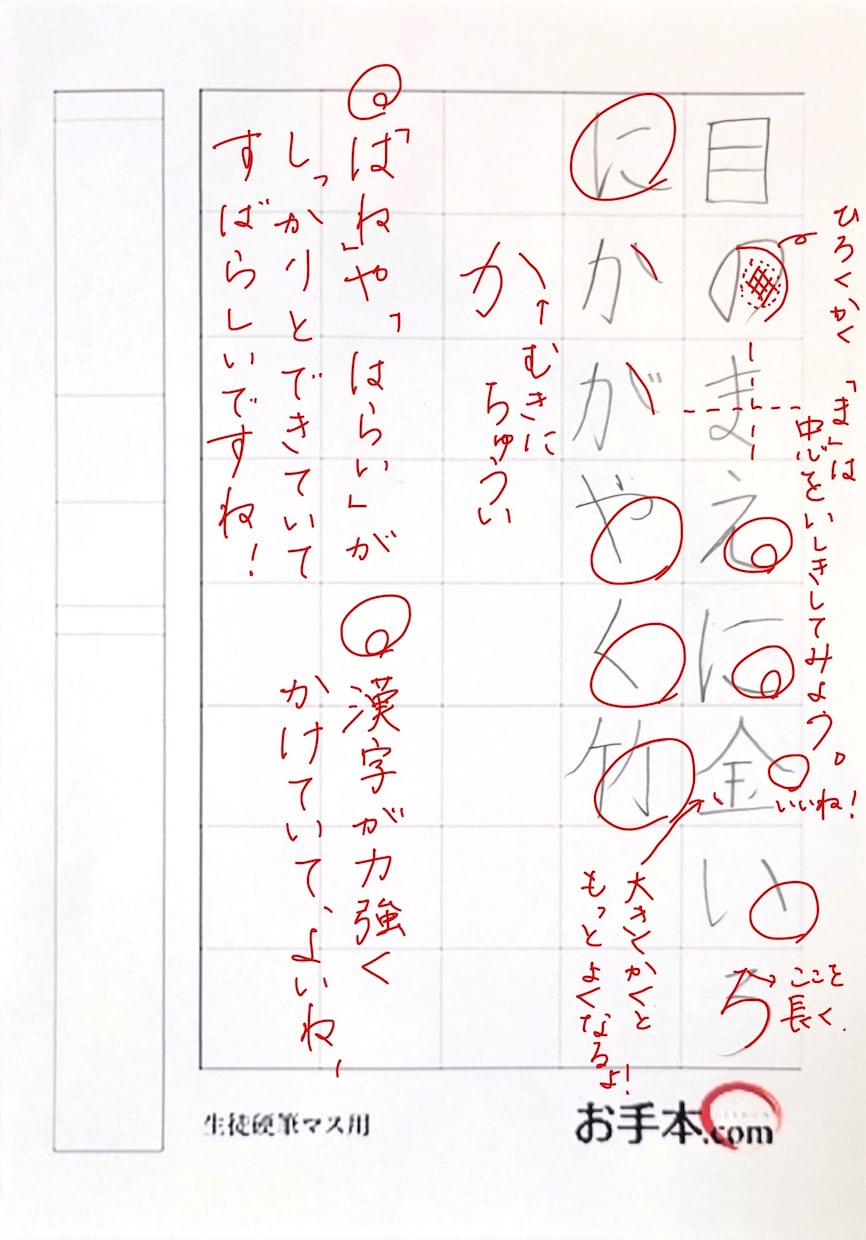 ひろくかく
「ま」は
中心をいしきしてみよう。
目のまえに金いろ
いいね！
ここを
長く.
にかがやく竹
大きくかくと
もっとよくなるよ！
か
↑むきに
ちゅうい
「はね」や「はらい」が
しっかりとできていて
すばらしいですね！
漢字が力強く
かけていて、よいね,
生徒硬筆マス用
お手本.com